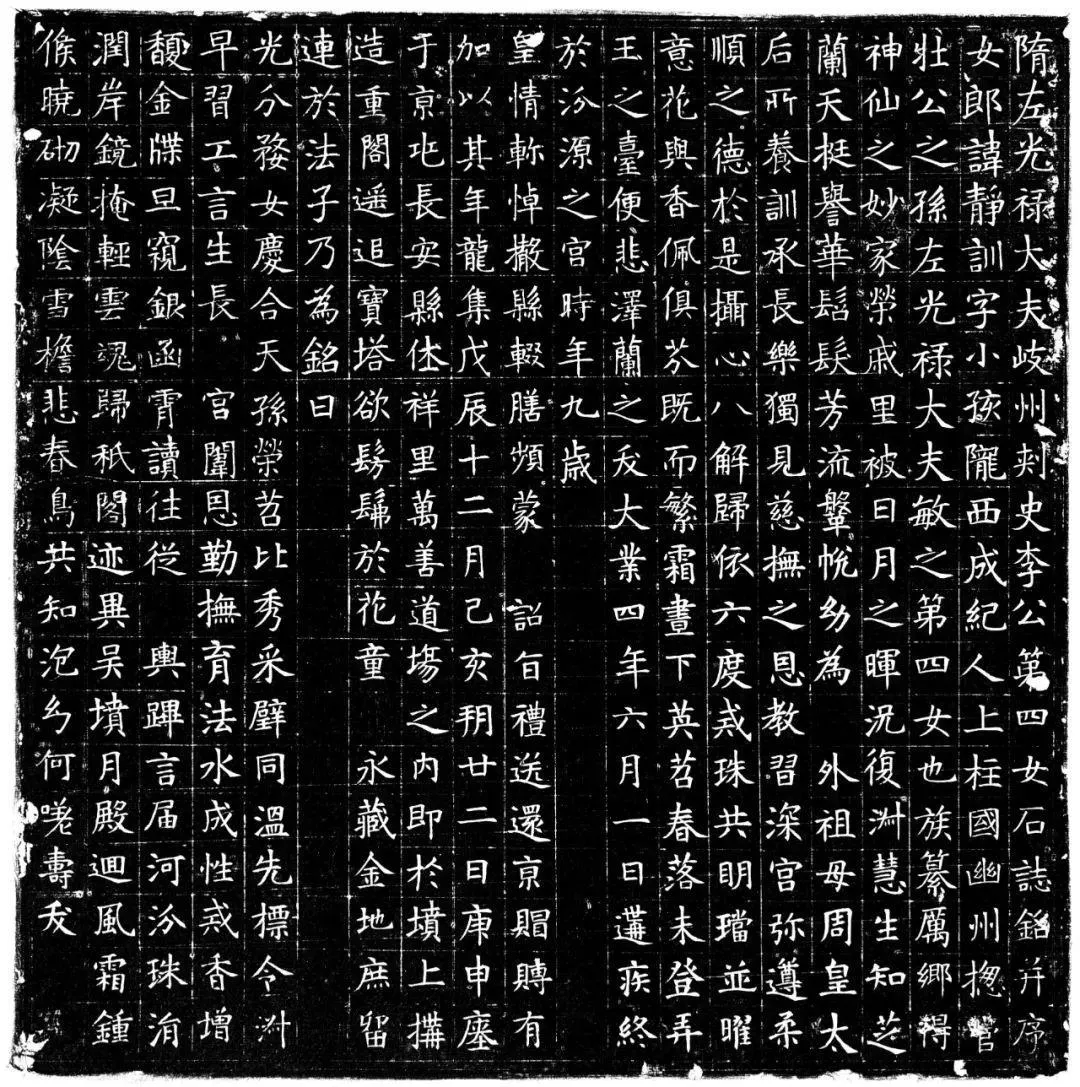 隋左光禄大夫岐州刾史李公第四女石誌銘并序
女郎諱靜訓字小孩隴西成紀人上柱國幽州揔管
壮公之孫左光禄大夫敏之第四女也族纂厲鄉得
神仙之妙家榮戚里被日月之暉況復淑慧生知芝
蘭天挺譽華髫髮芳流鞶帨㓜為 外祖母周皇太
后所養訓承長樂獨見慈撫之恩教習深宮弥遵柔
順之德於是攝心八解歸依六度戒珠共明璫並曜
意花與香佩俱芬既而繁霜晝下英苕春落未登弄
玉之臺便悲澤蘭之夭大業四年六月一日遘疾終
於汾源之宮時年九歲
皇情軫悼撤縣輟膳頻蒙 詔旨禮送還京賵賻有
加以其年龍集戊辰十二月己亥朔廿二日庚申塟
于京兆長安縣休祥里萬善道場之内即於墳上搆
造重閣遥追寶塔欲髣髴於花童 永藏金地庶留
連於法子乃為銘曰
光分婺女慶合天孫榮苕比秀采璧同溫先標令淑
早習工言生長 宮闈恩勤撫育法水成性戒香增
馥金牒旦窺銀函霄讀往從 輿蹕言届河汾珠涓
潤岸鏡掩輕雲魂歸秖閣迹異吳墳月殿迴風霜鍾
候曉砌凝陰雪檐悲春鳥共知泡幻何嗟壽夭